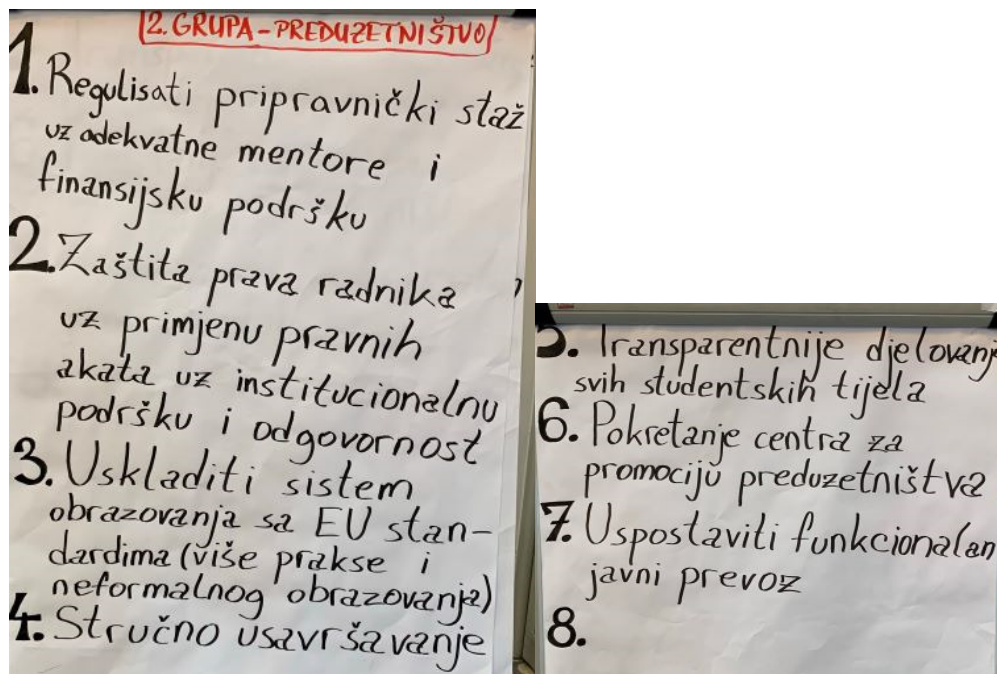 2. GRUPA - PREDUZETNIŠTVO
1. Regulisati pripravnički staž
uz adekvatne mentore i
finansijsku podršku
2. Zaštita prava radnika
uz primjenu pravnih
akata uz institucionalnu
podršku i odgovornost
3. Uskladiti sistem
obrazovanja sa EU stan-
dardima (više prakse i
neformalnog obrazovanja)
4. Stručno usavršavanje
5. Transparentnije djelovanj
svih studentskih tijela
6. Pokretanje centra za
promociju preduzetništva
7. Uspostaviti funkcionalan
javni prevoz
8.